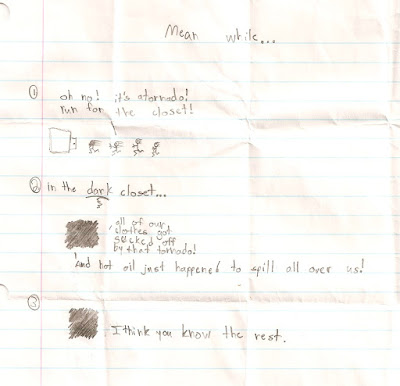 Mean while...
① oh no! it's atornado!
run for the closet!
② In the dark closet...
all of our
clothes got
sucked off
by that tornado!
And hot oil just happened to spill all over us!
③
I think you know the rest.